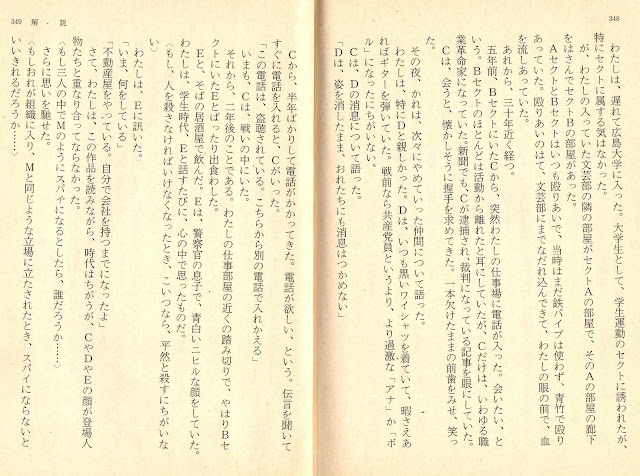 348
わたしは、遅れて広島大学に入った。大学生として、学生運動のセクトに誘われたが、
特にセクトに属する気はなかった。
が、わたしの入っていた文芸部の隣の部屋がセクトAの部屋で、そのAの部屋の廊下
をはさんでセクトBの部屋があった。
AセクトとBセクトはいつも殴りあいで、当時はまだ鉄パイプは使わず、青竹で殴り
あっていた。殴りあいのはて、文芸部にまでなだれ込んできて、わたしの眼の前で、血
を流しあっていた。
あれから、三十年近く経つ。
五年前、BセクトにいたCから、突然わたしの仕事場に電話が入った。会いたい、と
いう。Bセクトのほとんどは活動から離れたと耳にしていたが、Cだけは、いわゆる職
業革命家になっていた。新聞でも、Cが逮捕され、裁判になっている記事を眼にしていた。
Cは、会うと、懐かしそうに握手を求めてきた。一本欠けたままの前歯をみせ、笑っ
た。
その夜、かれは、次々にやめていった仲間について語った。
わたしは、特にDと親しかった。Dは、いつも黒いワイシャツを着ていて、暇さえあ
ればギターを弾いていた。戦前なら共産党員というより、より過激な「アナ」か「ボ
ル」になったにちがいない。
Cは、Dの消息について語った。
「Dは、姿を消したまま、おれたちにも消息はつかめない」
349 解説
Cから、半年ばかりして電話がかかってきた。電話が欲しい、という。伝言を聞いて
すぐに電話を入れると、Cがいった。
「この電話は、盗聴されている。こちらから別の電話で入れかえる」
いまも、Cは、戦いの中にいた。
それから、二年後のことである。わたしの仕事部屋の近くの踏み切りで、やはりBセ
クトにいたEとばったり出食わした。
Eと、そばの居酒屋で飲んだ。Eは、警察官の息子で、青白いニヒルな顔をしていた。
わたしは、学生時代、Eと話すたびに、心の中で思ったものだ。
〈もし、人を殺さなければいけなくなったとき、こいつなら、平然と殺すにちがいな
い〉
わたしは、Eに訊いた。
「いま、何をしている」
「不動産屋をやっている。自分で会社を持つまでになったよ」
さて、わたしは、この作品を読みながら、時代はちがうが、CやDやEの顔が登場人
物たちと重なり合ってならなかった。
さらに思いを馳せた。
〈もし三人の中でMのようにスパイになるとしたら、誰だろうか……〉
〈もしおれが組織に入り、Mと同じような立場に立たされたとき、スパイにならないと
いいきれるだろうか……〉